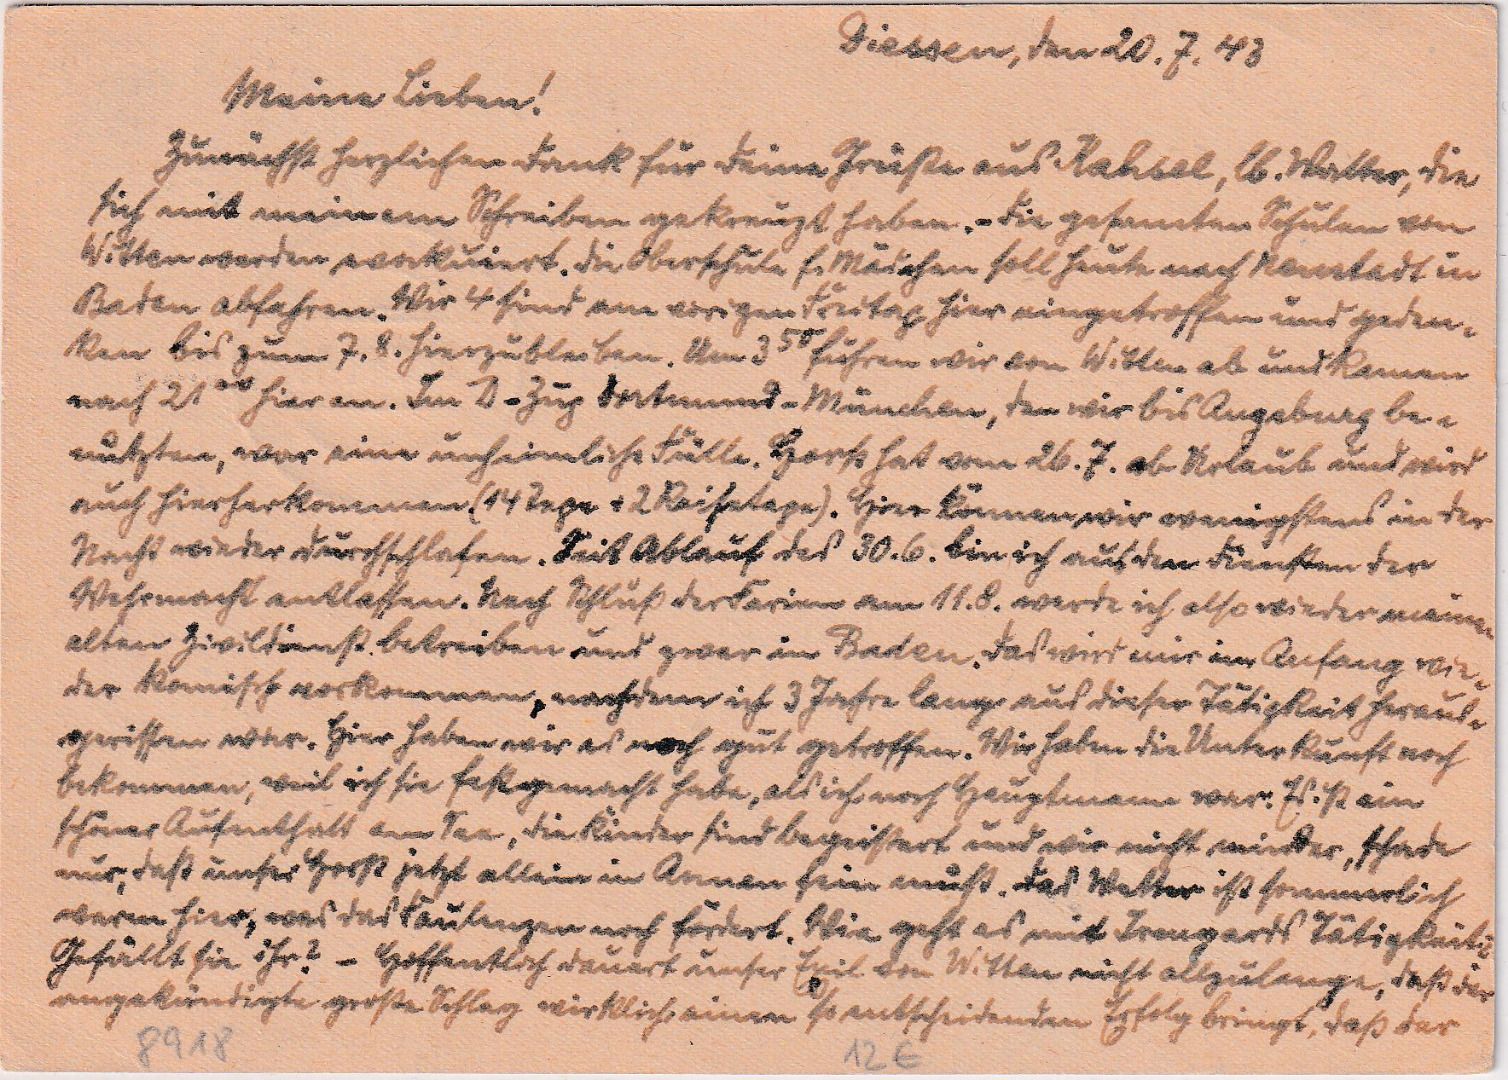 Diessen, den 20. 7. 43
Meine Lieben!
Zunächst herzlichen Dank für Deine Grüße aus Kassel, lb. Walter, die
sich mit meinem Schreiben gekreuzt haben. - Die gesamten Schulen von
Witten werden evakuiert. Die Oberschule f. Mädchen soll heute nach Neustadt in
Baden abfahren. Wir 4 sind am vorigen Freitag hier eingetroffen und geden-
ken bis zum 7. 8. hierzubleiben. Um 3 50 fuhren wir von Witten ab und kamen
nach 21 00 hier an. Im D-Zug Dortmund-München, den wir bis Augsburg be-
nutzten, war eine unheimliche Fülle. Horst hat vom 26. 7. ab Urlaub und wird
auch hierherkommen (14 Tage + 2 Reisetage). Hier können wir wenigstens in der
Nacht wieder durchschlafen. Seit Ablauf des 30. 6. bin ich aus den Diensten der
Wehrmacht entlassen. Nach Schluß der Ferien am 11. 8. werde ich also wieder meinen
alten Zivildienst betreiben und zwar in Baden. Das wird mir im Anfang wie-
der komisch vorkommen, nachdem ich 3 Jahre lang aus dieser Tätigkeit heraus-
gerissen war. Hier haben wir es noch gut getroffen. Wir haben die Unterkunft noch
bekommen, weil ich sie festgemacht habe, als ich noch Hauptmann war. Es ist ein
schöner Aufenthalt am See, die Kinder sind begeistert und wir nicht minder, schade
nur, daß unser Horst jetzt allein in Annen sein muß. Das Wetter ist sommerlich
warm hier, was das Faulenzen noch fördert. Wie geht es mit Irmgards Tätigkeit?
Gefällt sie ihr? - Hoffentlich dauert unser Exil von Witten nicht allzulange, daß der
angekündigte große Schlag wirklich einen so entscheidenden Erfolg bringt, daß der
8918 12€